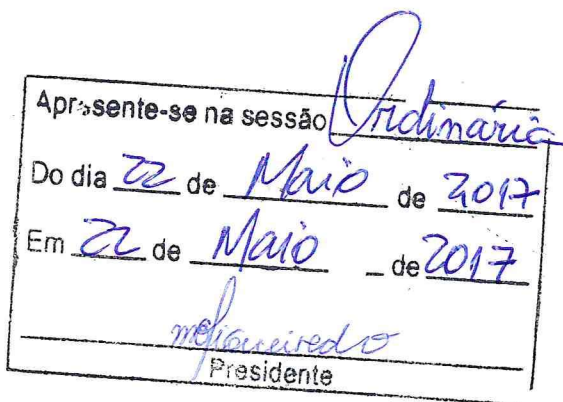 Apresente-se na sessão Ordinária
Do dia 22 de Maio de 2017
Em 22 de Maio de 2017
mfigueiredo
Presidente